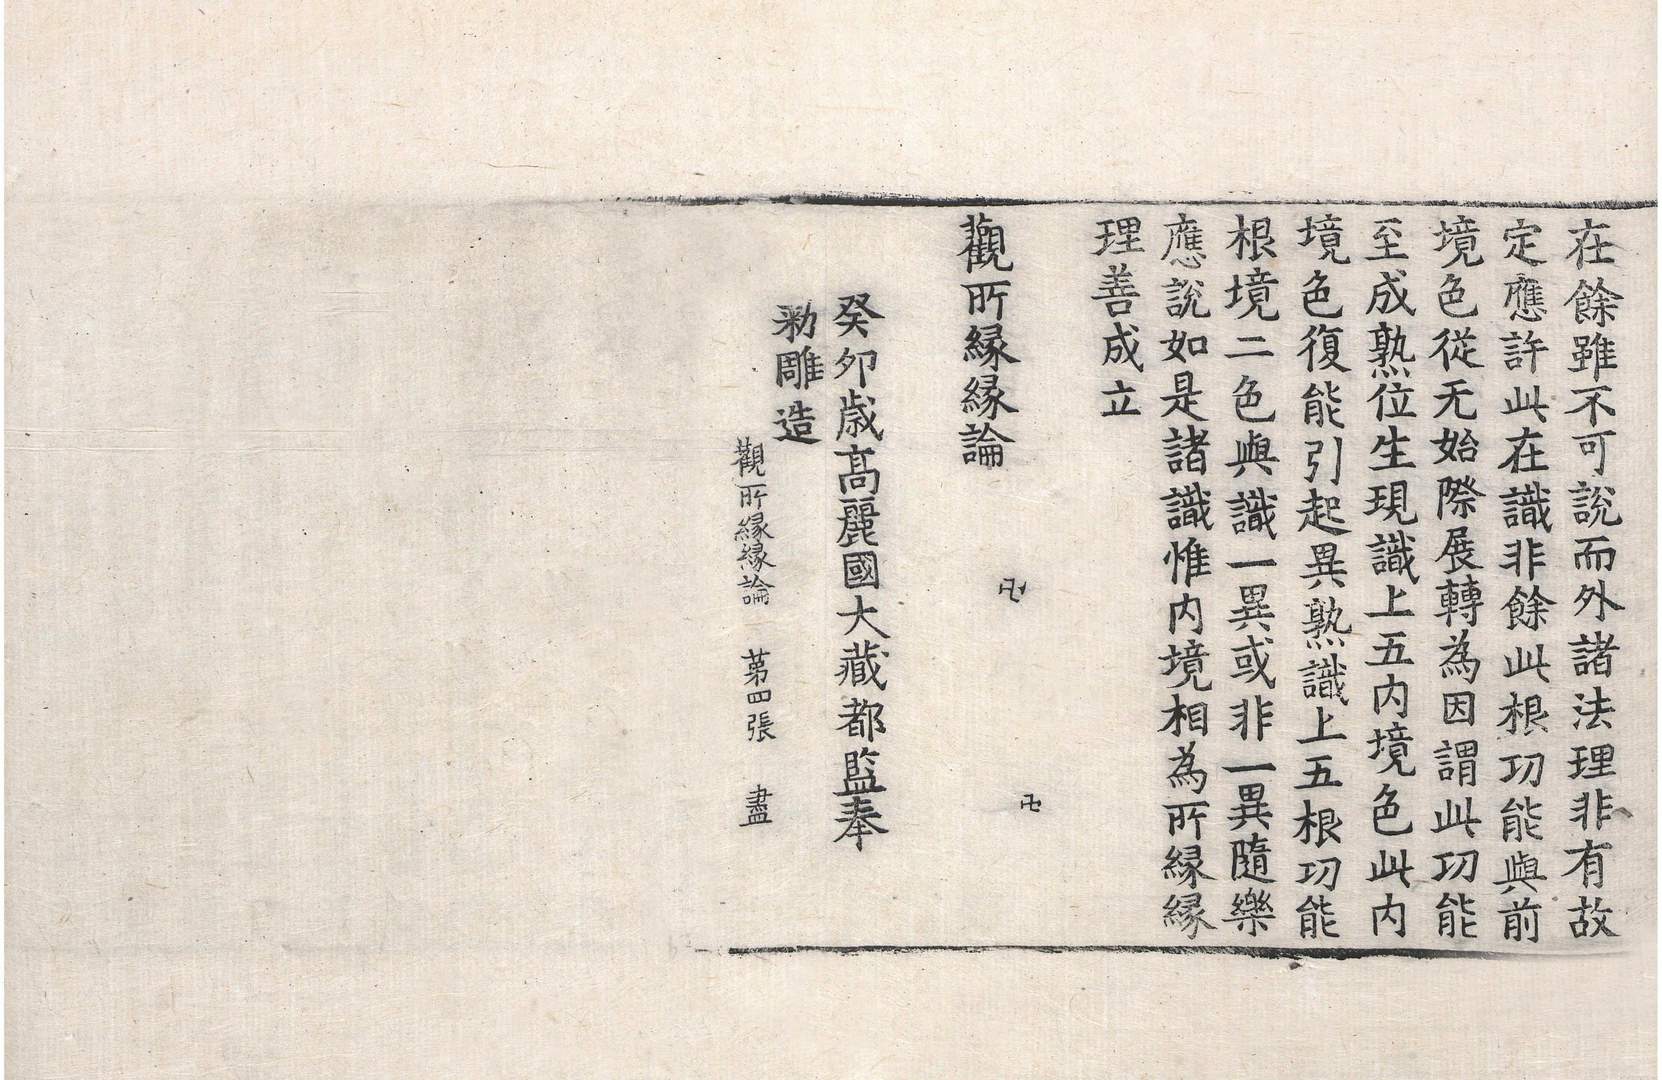 在餘雖不可說而外諸法理非有故
定應許此在識非餘此根功能與前
境色從无始際展轉為因謂此功能
至成熟位生現識上五內境色此內
境色復能引起異熟識上五根功能
根境二色與識一異或非一異隨樂
應說如是諸識惟內境相為所緣緣
理善成立
卍
卍
觀所緣緣論
癸卯歲高麗國大藏都監奉
勑雕造
觀所緣緣論 第四張 盡